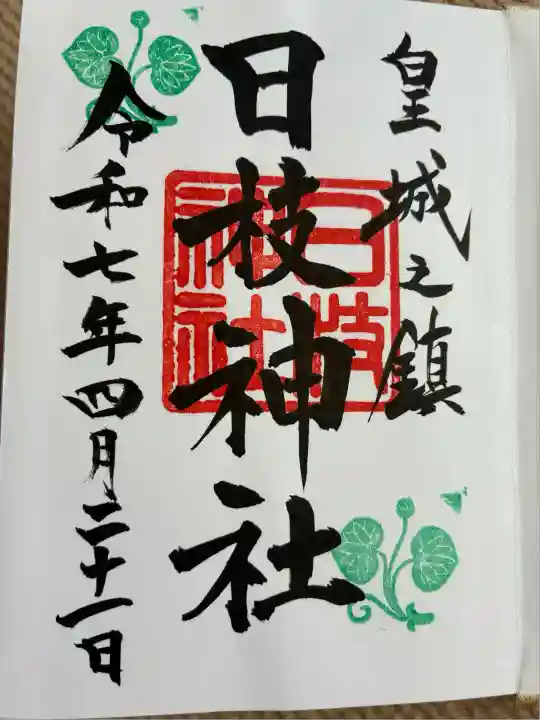 皇城之鎮
日枝神社
日枝神社
令和七年四月二十一日